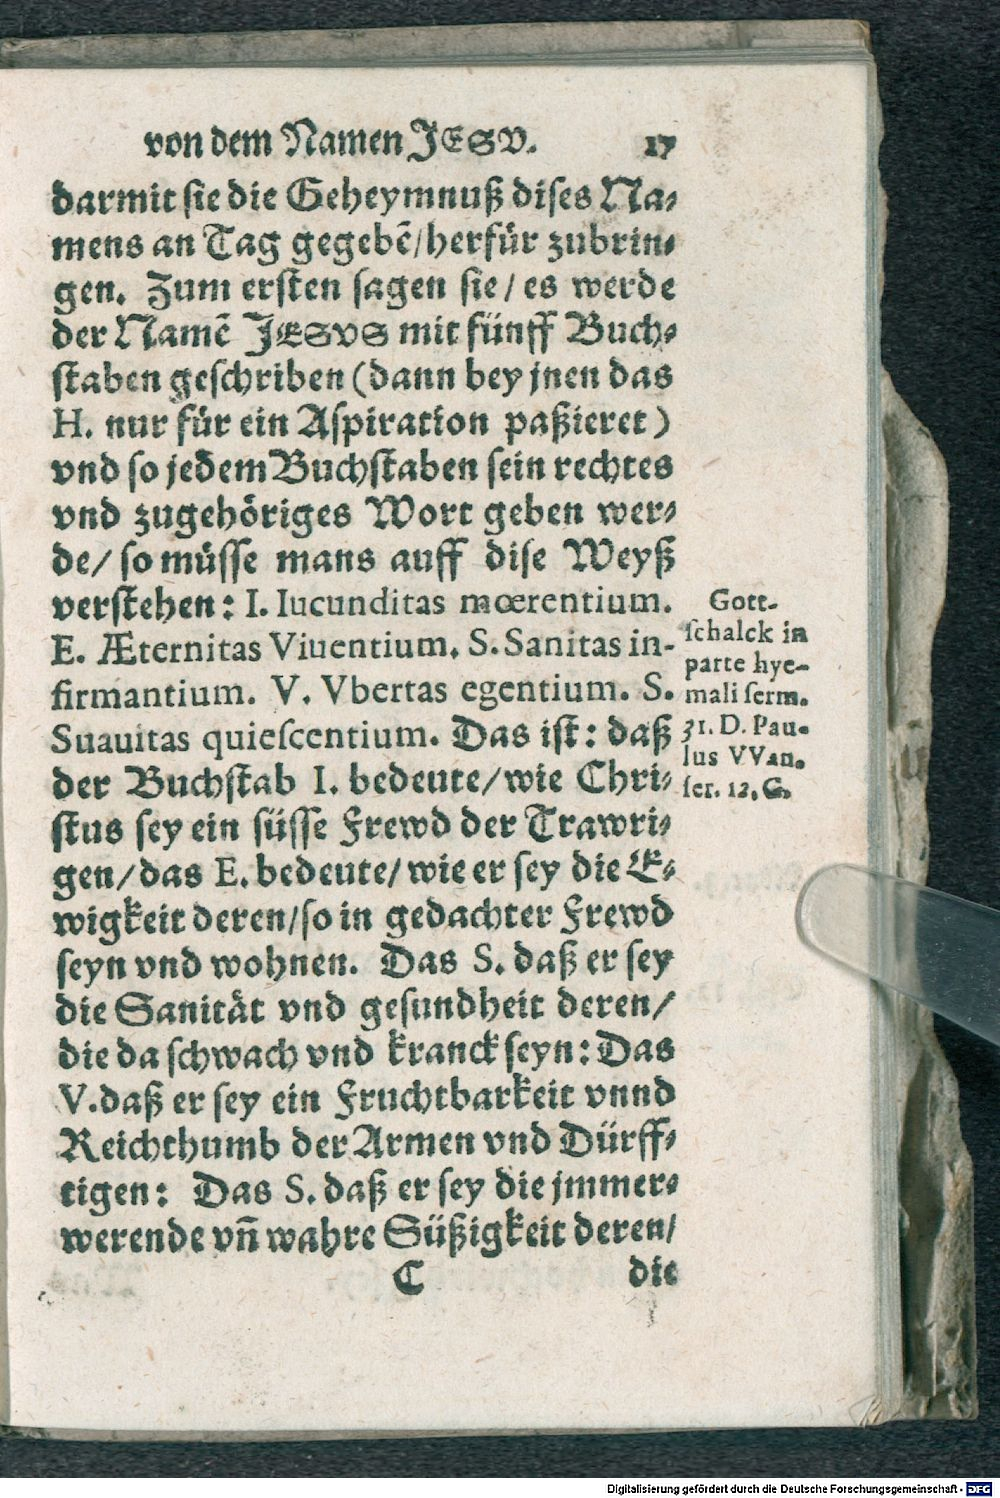 von dem Namen JESV. 17
darmit sie die Geheymnuß dises Na-
mens an Tag gegebẽ/herfür zubrin-
gen. Zum ersten sagen sie/ es werde
der Namẽ JESVS mit fünff Buch-
staben geschriben (dann bey jnen das
H. nur für ein Aspiration paßieret)
vnd so jedem Buchstaben sein rechtes
vnd zugehöriges Wort geben wer-
de/ so müsse mans auff dise Weyß
verstehen: I. Iucunditas mœrentium.
E. Æternitas Viuentium. S. Sanitas in-
firmantium. V. Vbertas egentium. S.
Suauitas quiescentium. Das ist: daß
der Buchstab I. bedeute/wie Chri-
stus sey ein süsse Frewd der Trawri-
gen/das E. bedeute/wie er sey die E-
wigkeit deren/so in gedachter Frewd
seyn vnd wohnen. Das S. daß er sey
die Sanität vnd gesundheit deren/
die da schwach vnd kranck seyn: Das
V. daß er sey ein Fruchtbarkeit vnnd
Reichthumb der Armen vnd Dürff-
tigen: Das S. daß er sey die jmmer-
werende vñ wahre Süßigkeit deren/
C die
Gott-
schalck in
parte hye-
mali serm.
31. D. Pau-
lus VVan.
ser. 12. G.
Digitalisierung gefördert durch die Deutsche Forschungsgemeinschaft - DFG